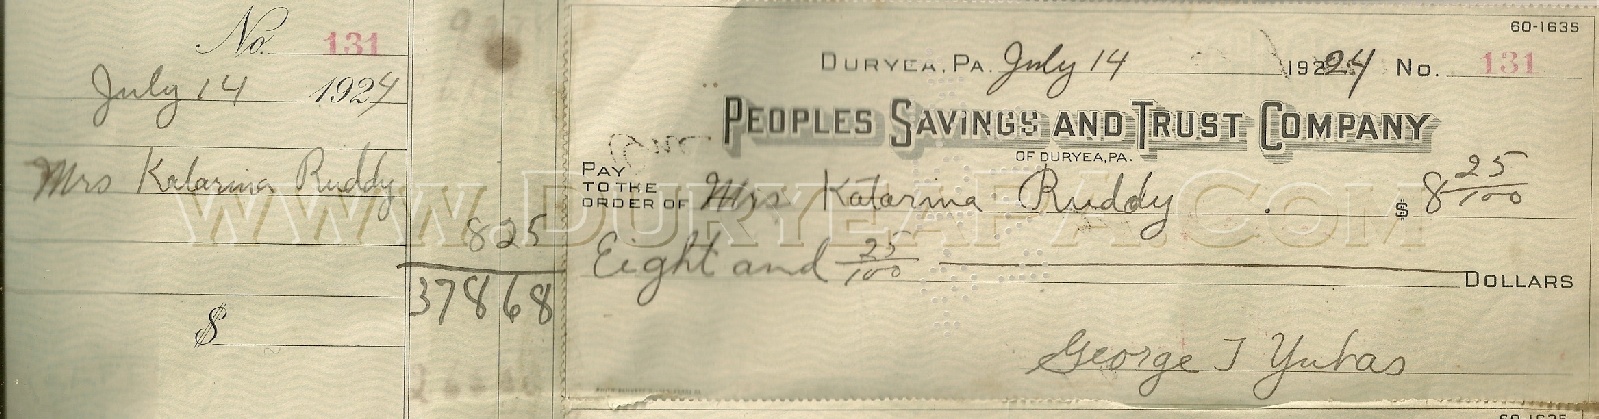 No. 131
July 14 1924
Mrs Katarina Ruddy
8 25
378 68
$
60-1635
DURYEA, PA. July 14 1924 No. 131
PEOPLES SAVINGS AND TRUST COMPANY
OF DURYEA, PA.
PAY
TO THE
ORDER OF Mrs Katarina Ruddy $ 8 25/100
Eight and 25/100 DOLLARS
George J Yuhas
WWW.DURYEAPA.COM
60-1635